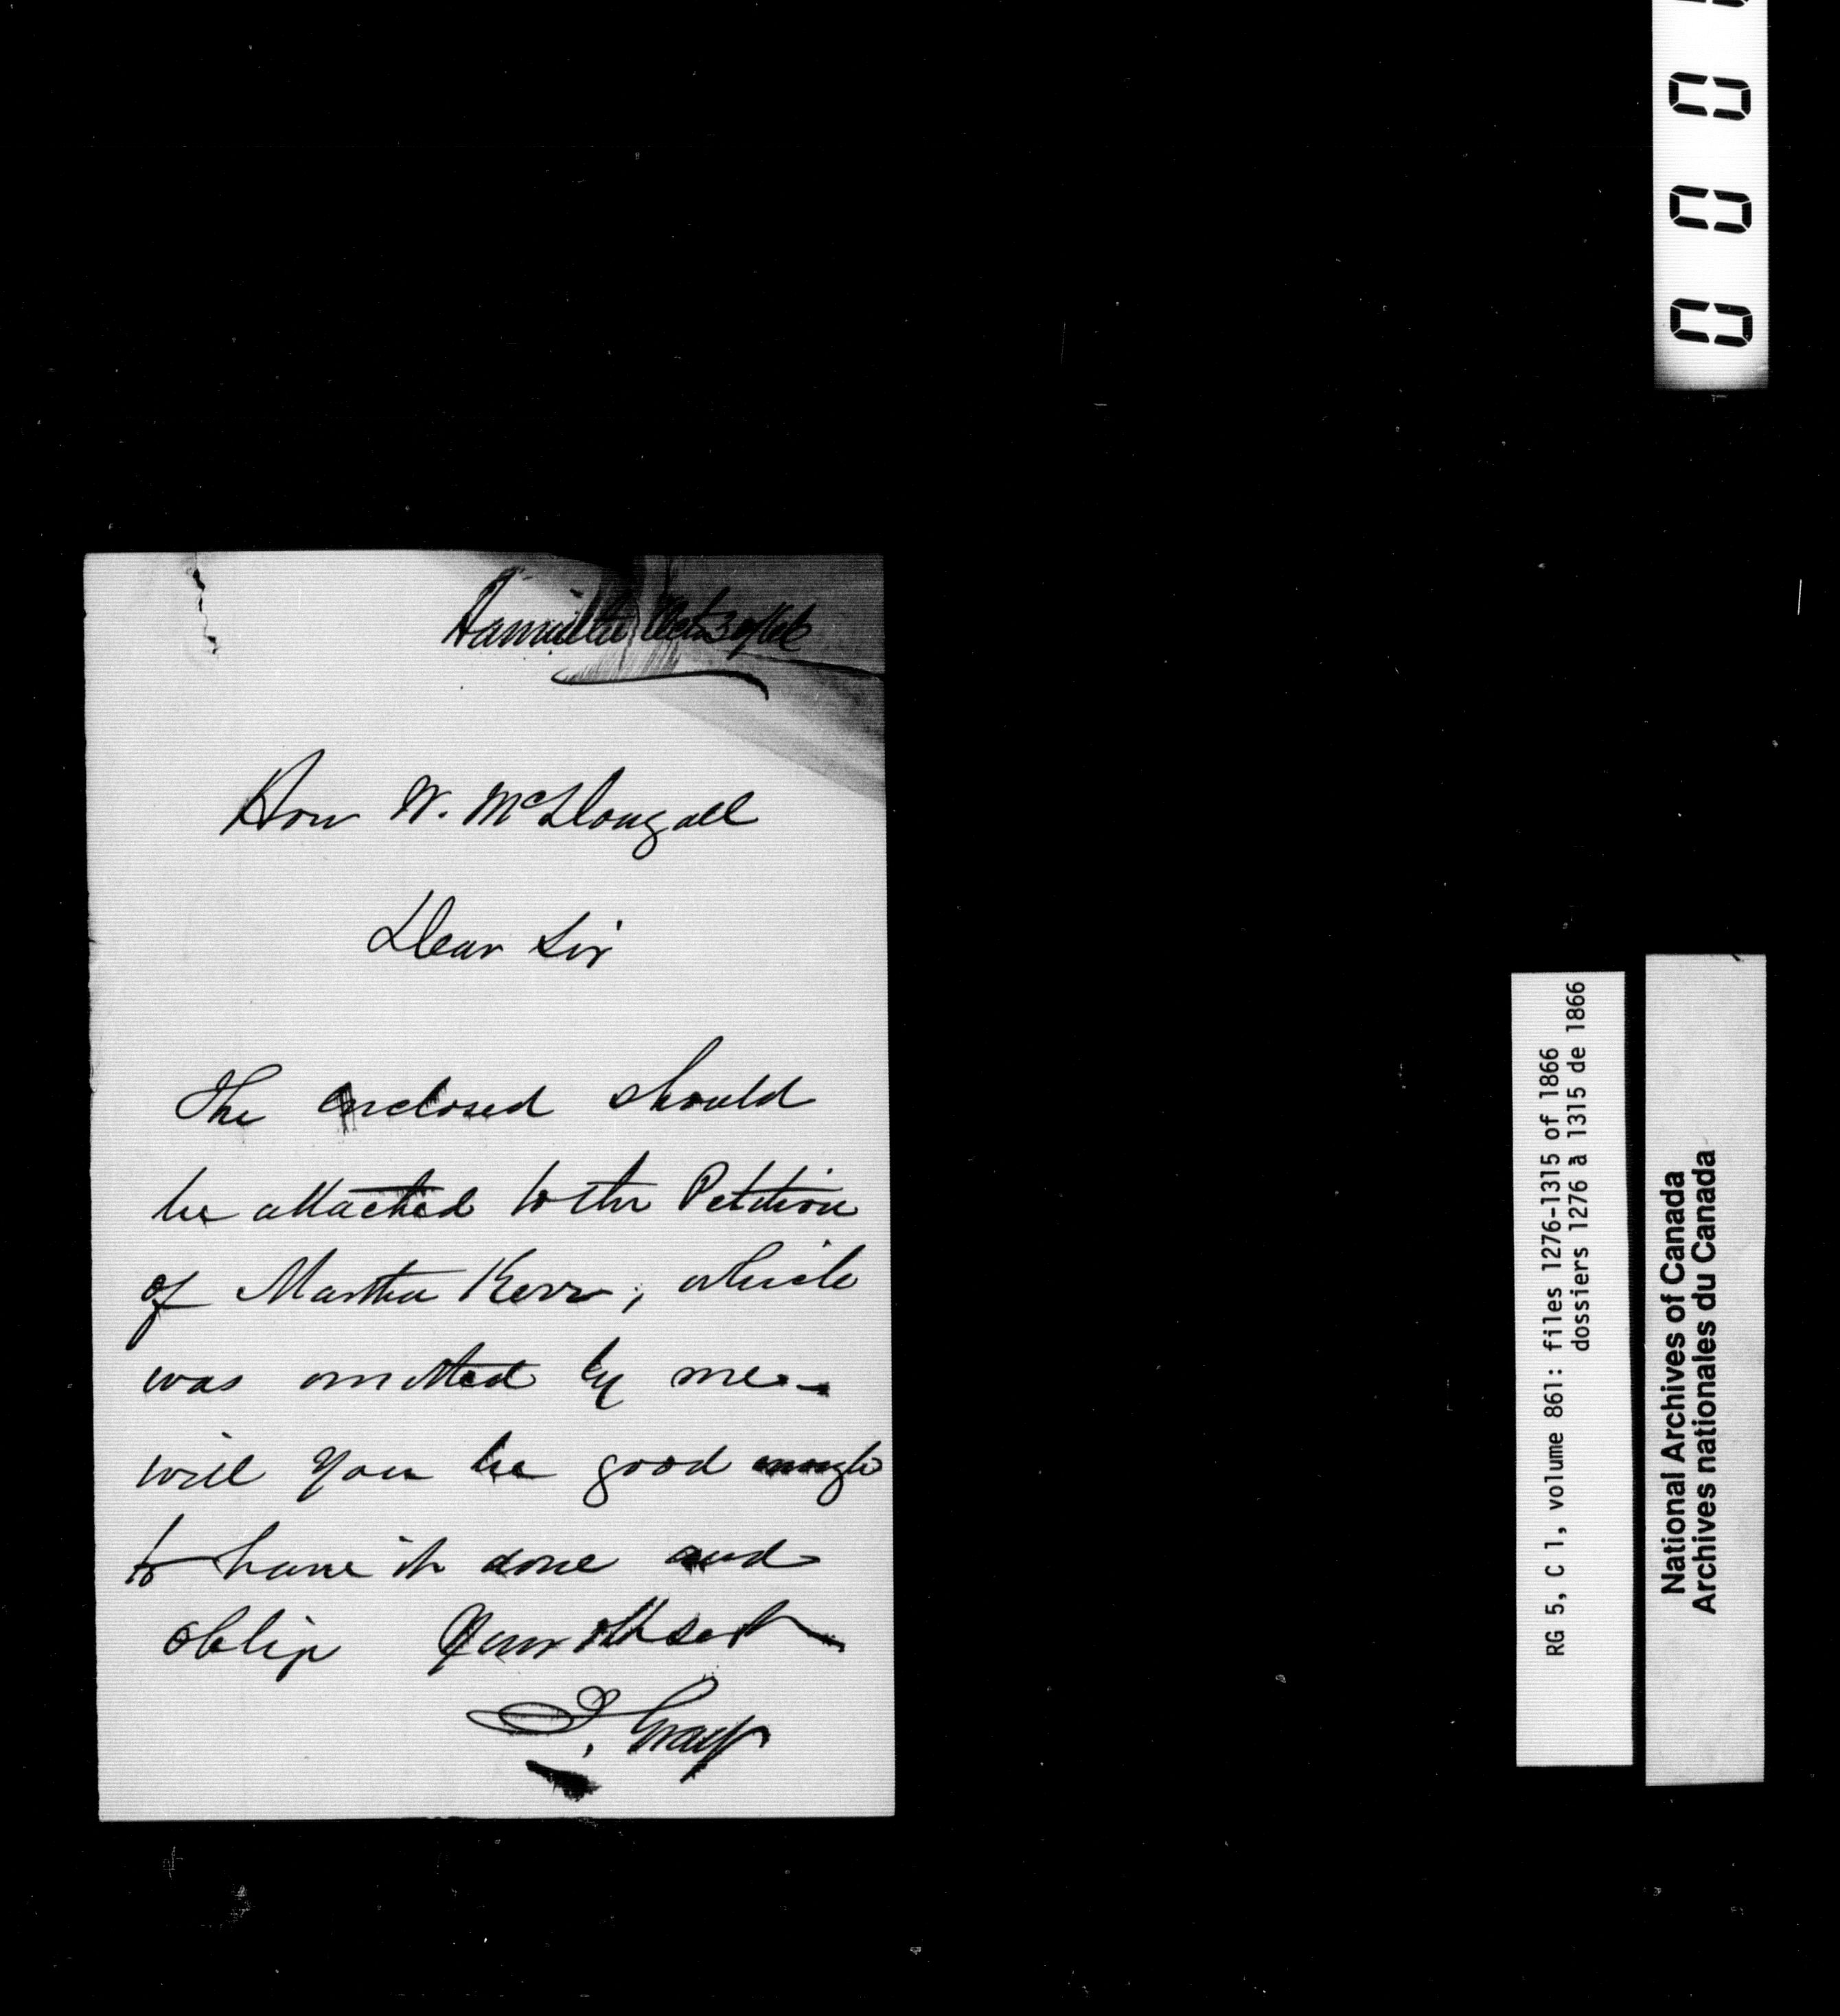 Hamilton Oct 30/66
Hon W. McDougall
Dear Sir
The enclosed should
be attached to the Petition
of Martha Kerr, which
was omitted by me—
will you be good enough
to have it done and
oblige Your Obt Sert
Gray
0 0 0
RG 5, C 1, volume 861: files 1276-1315 of 1866
dossiers 1276 à 1315 de 1866
National Archives of Canada
Archives nationales du Canada